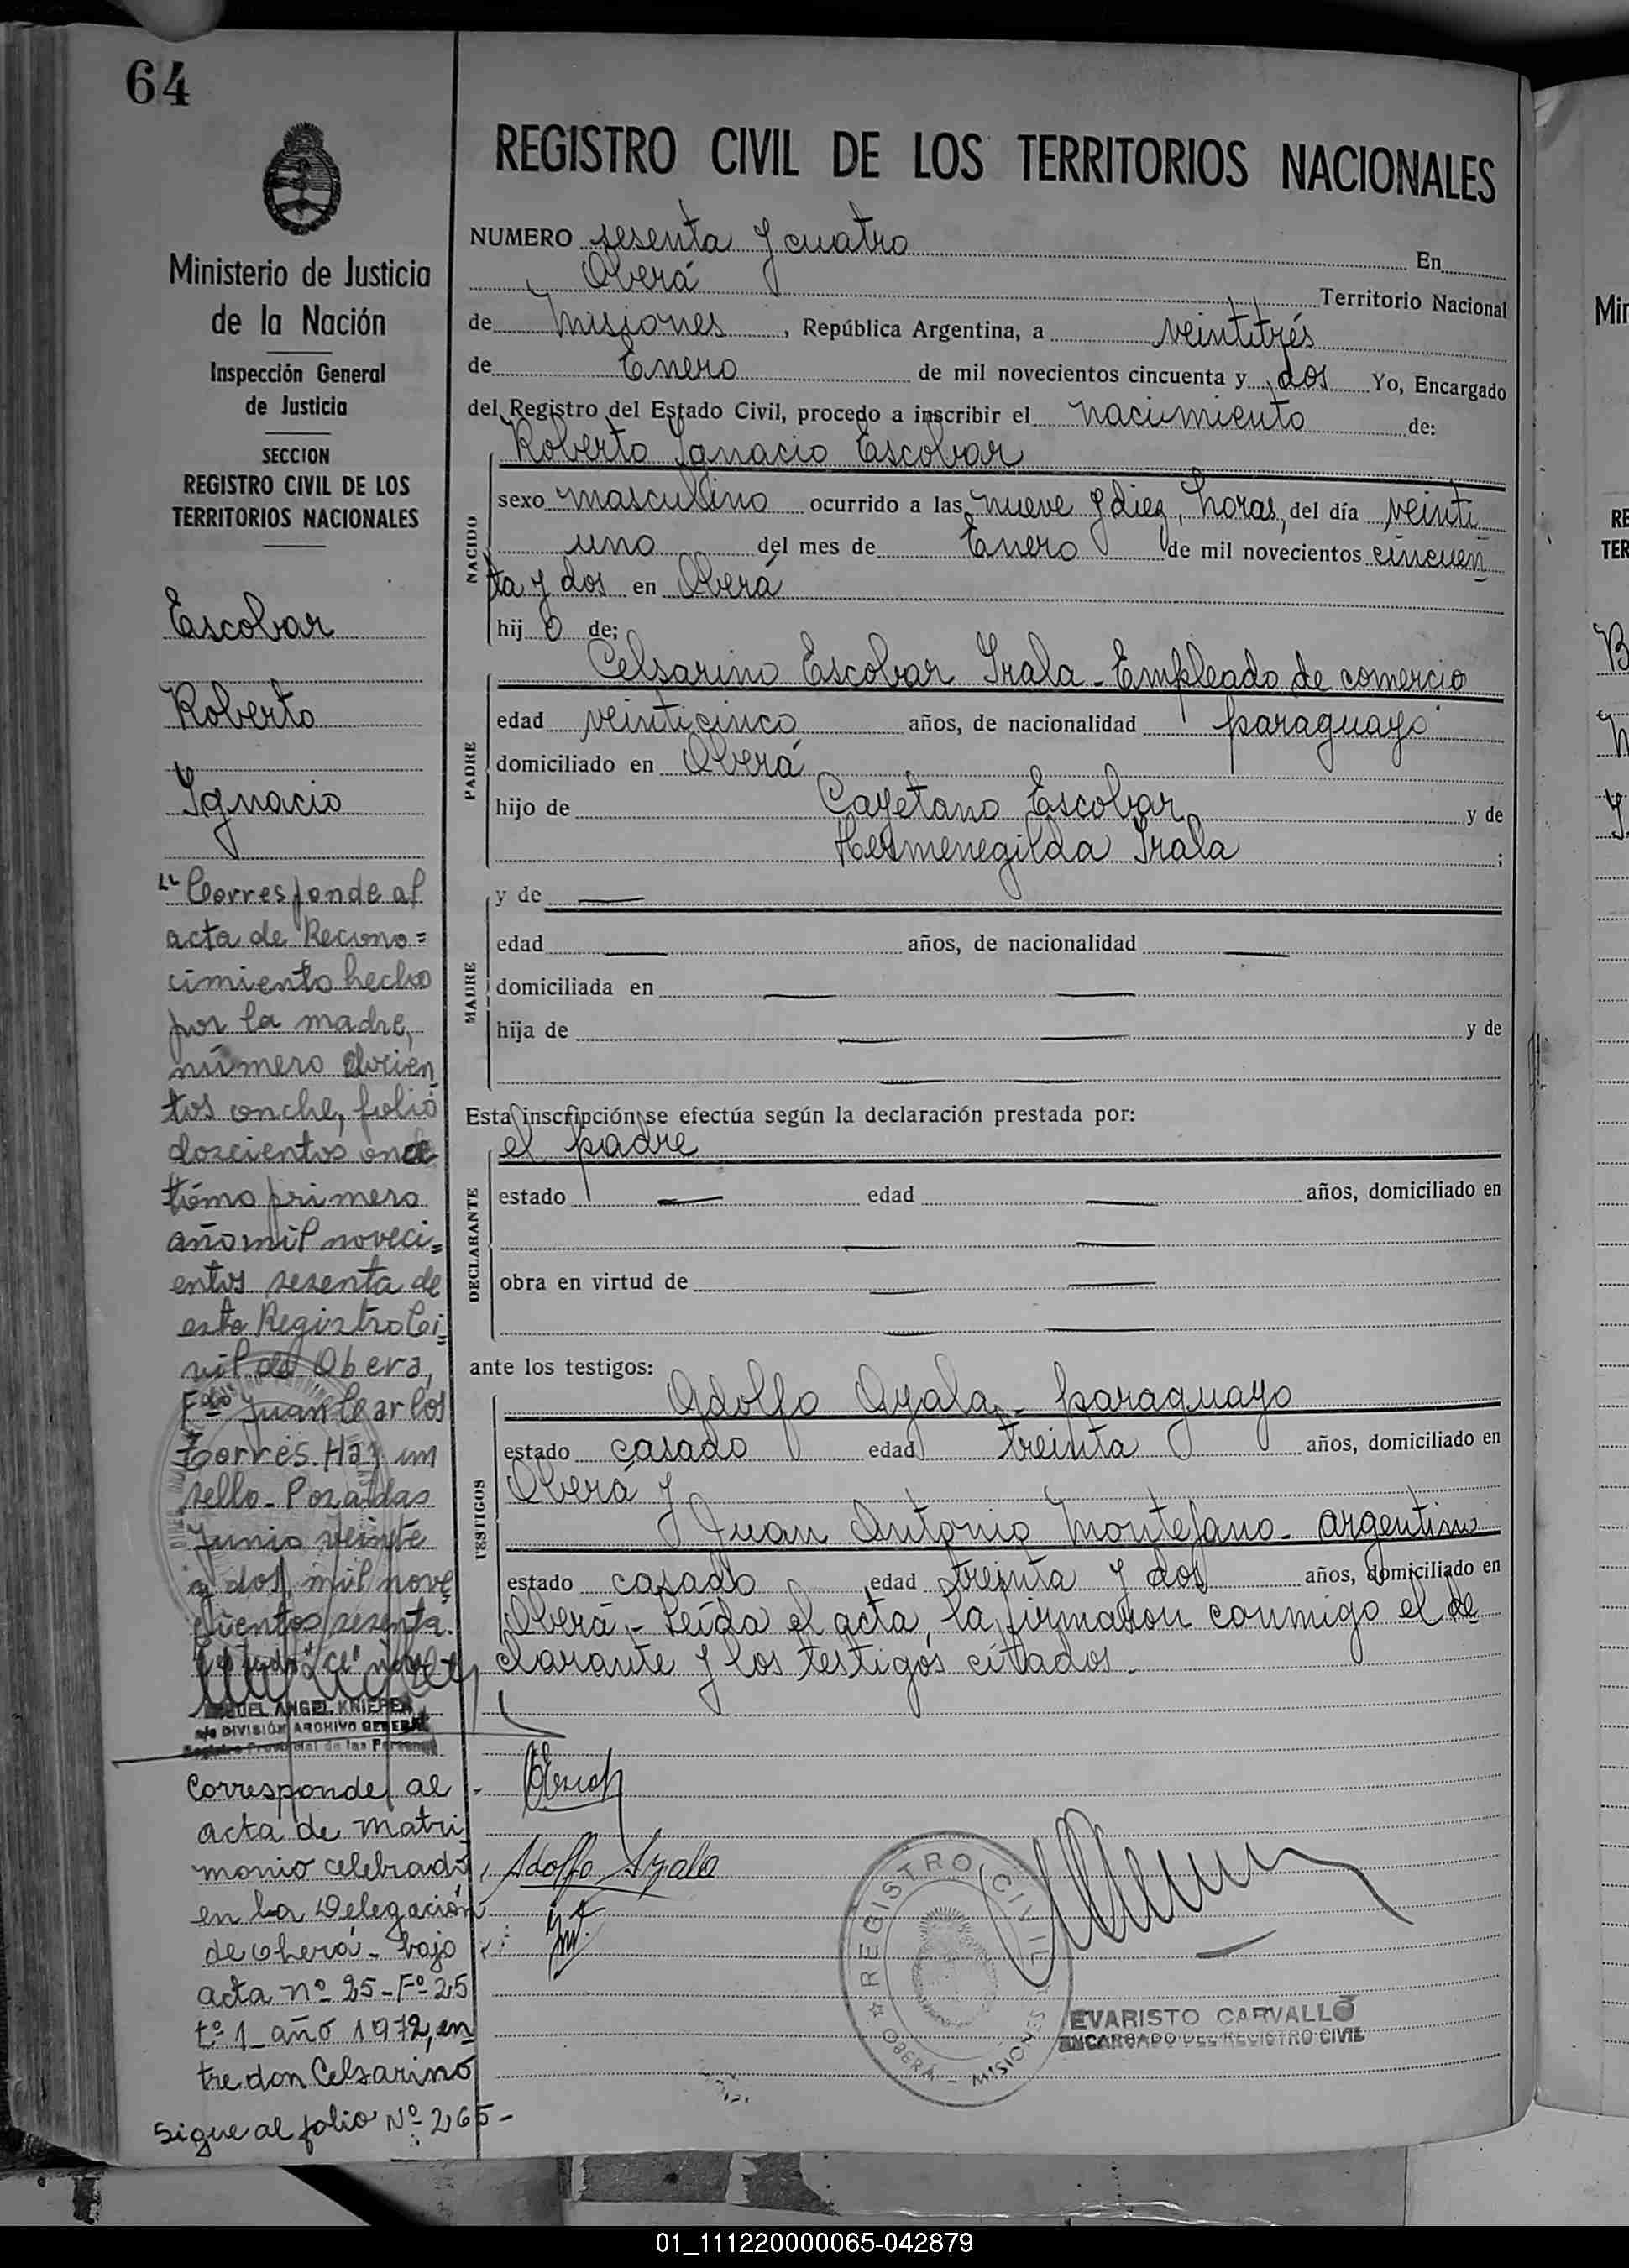 64
Ministerio de Justicia
de la Nación
Inspección General
de Justicia
SECCION
REGISTRO CIVIL DE LOS
TERRITORIOS NACIONALES
Escobar
Roberto
Ignacio
"Corresponde al
acta de Recono=
cimiento hecho
por la madre,
número docien
tos onche, folio
doscientos once
tomo primero
año mil noveci=
entos sesenta de
este Registro Ci=
vil de Obera,
Fdo Juan Carlos
Torres. Hay un
sello - Posadas
Junio veinte
y dos, mil nove
cientos sesenta.
MIGUEL ANGEL KRIEPER
a/c DIVISIÓN ARCHIVO GENERAL
Registro Provincial de las Personas
Corresponde al
acta de matri
monio celebrado
en la Delegación
de Oberá - bajo
acta nº 25 - Fº 25
tº 1 - año 1972, en
tre don Celsarino
Sigue al folio Nº 265 -
REGISTRO CIVIL DE LOS TERRITORIOS NACIONALES
NUMERO sesenta y cuatro En
Oberá Territorio Nacional
de Misiones, República Argentina, a veintitrés
de Enero de mil novecientos cincuenta y dos Yo, Encargado
del Registro del Estado Civil, procedo a inscribir el nacimiento de:
Roberto Ignacio Escobar
NACIDO
sexo masculino ocurrido a las nueve y diez, horas, del día veinti
uno del mes de Enero de mil novecientos cincuen
ta y dos en Oberá
hijo de:
Celsarino Escobar Irala - Empleado de comercio
PADRE
edad veinticinco años, de nacionalidad paraguayo
domiciliado en Oberá
hijo de Cayetano Escobar y de
Hermenegilda Irala ;
MADRE
y de —
edad — años, de nacionalidad —
domiciliada en — —
hija de — — y de
— —
Esta inscripción se efectúa según la declaración prestada por:
el padre
DECLARANTE
estado — edad — años, domiciliado en
— —
obra en virtud de — —
— —
ante los testigos:
TESTIGOS
Adolfo Ayala - paraguayo
estado casado edad treinta años, domiciliado en
Oberá y
Juan Antonio Montejano - argentino
estado casado edad treinta y dos años, domiciliado en
Oberá - Leída el acta, la firmaron conmigo el de
clarante y los testigos citados -
Adolfo Ayala
REGISTRO CIVIL
OBERÁ - MISIONES
EVARISTO CARVALLO
ENCARGADO DEL REGISTRO CIVIL
01_111220000065-042879